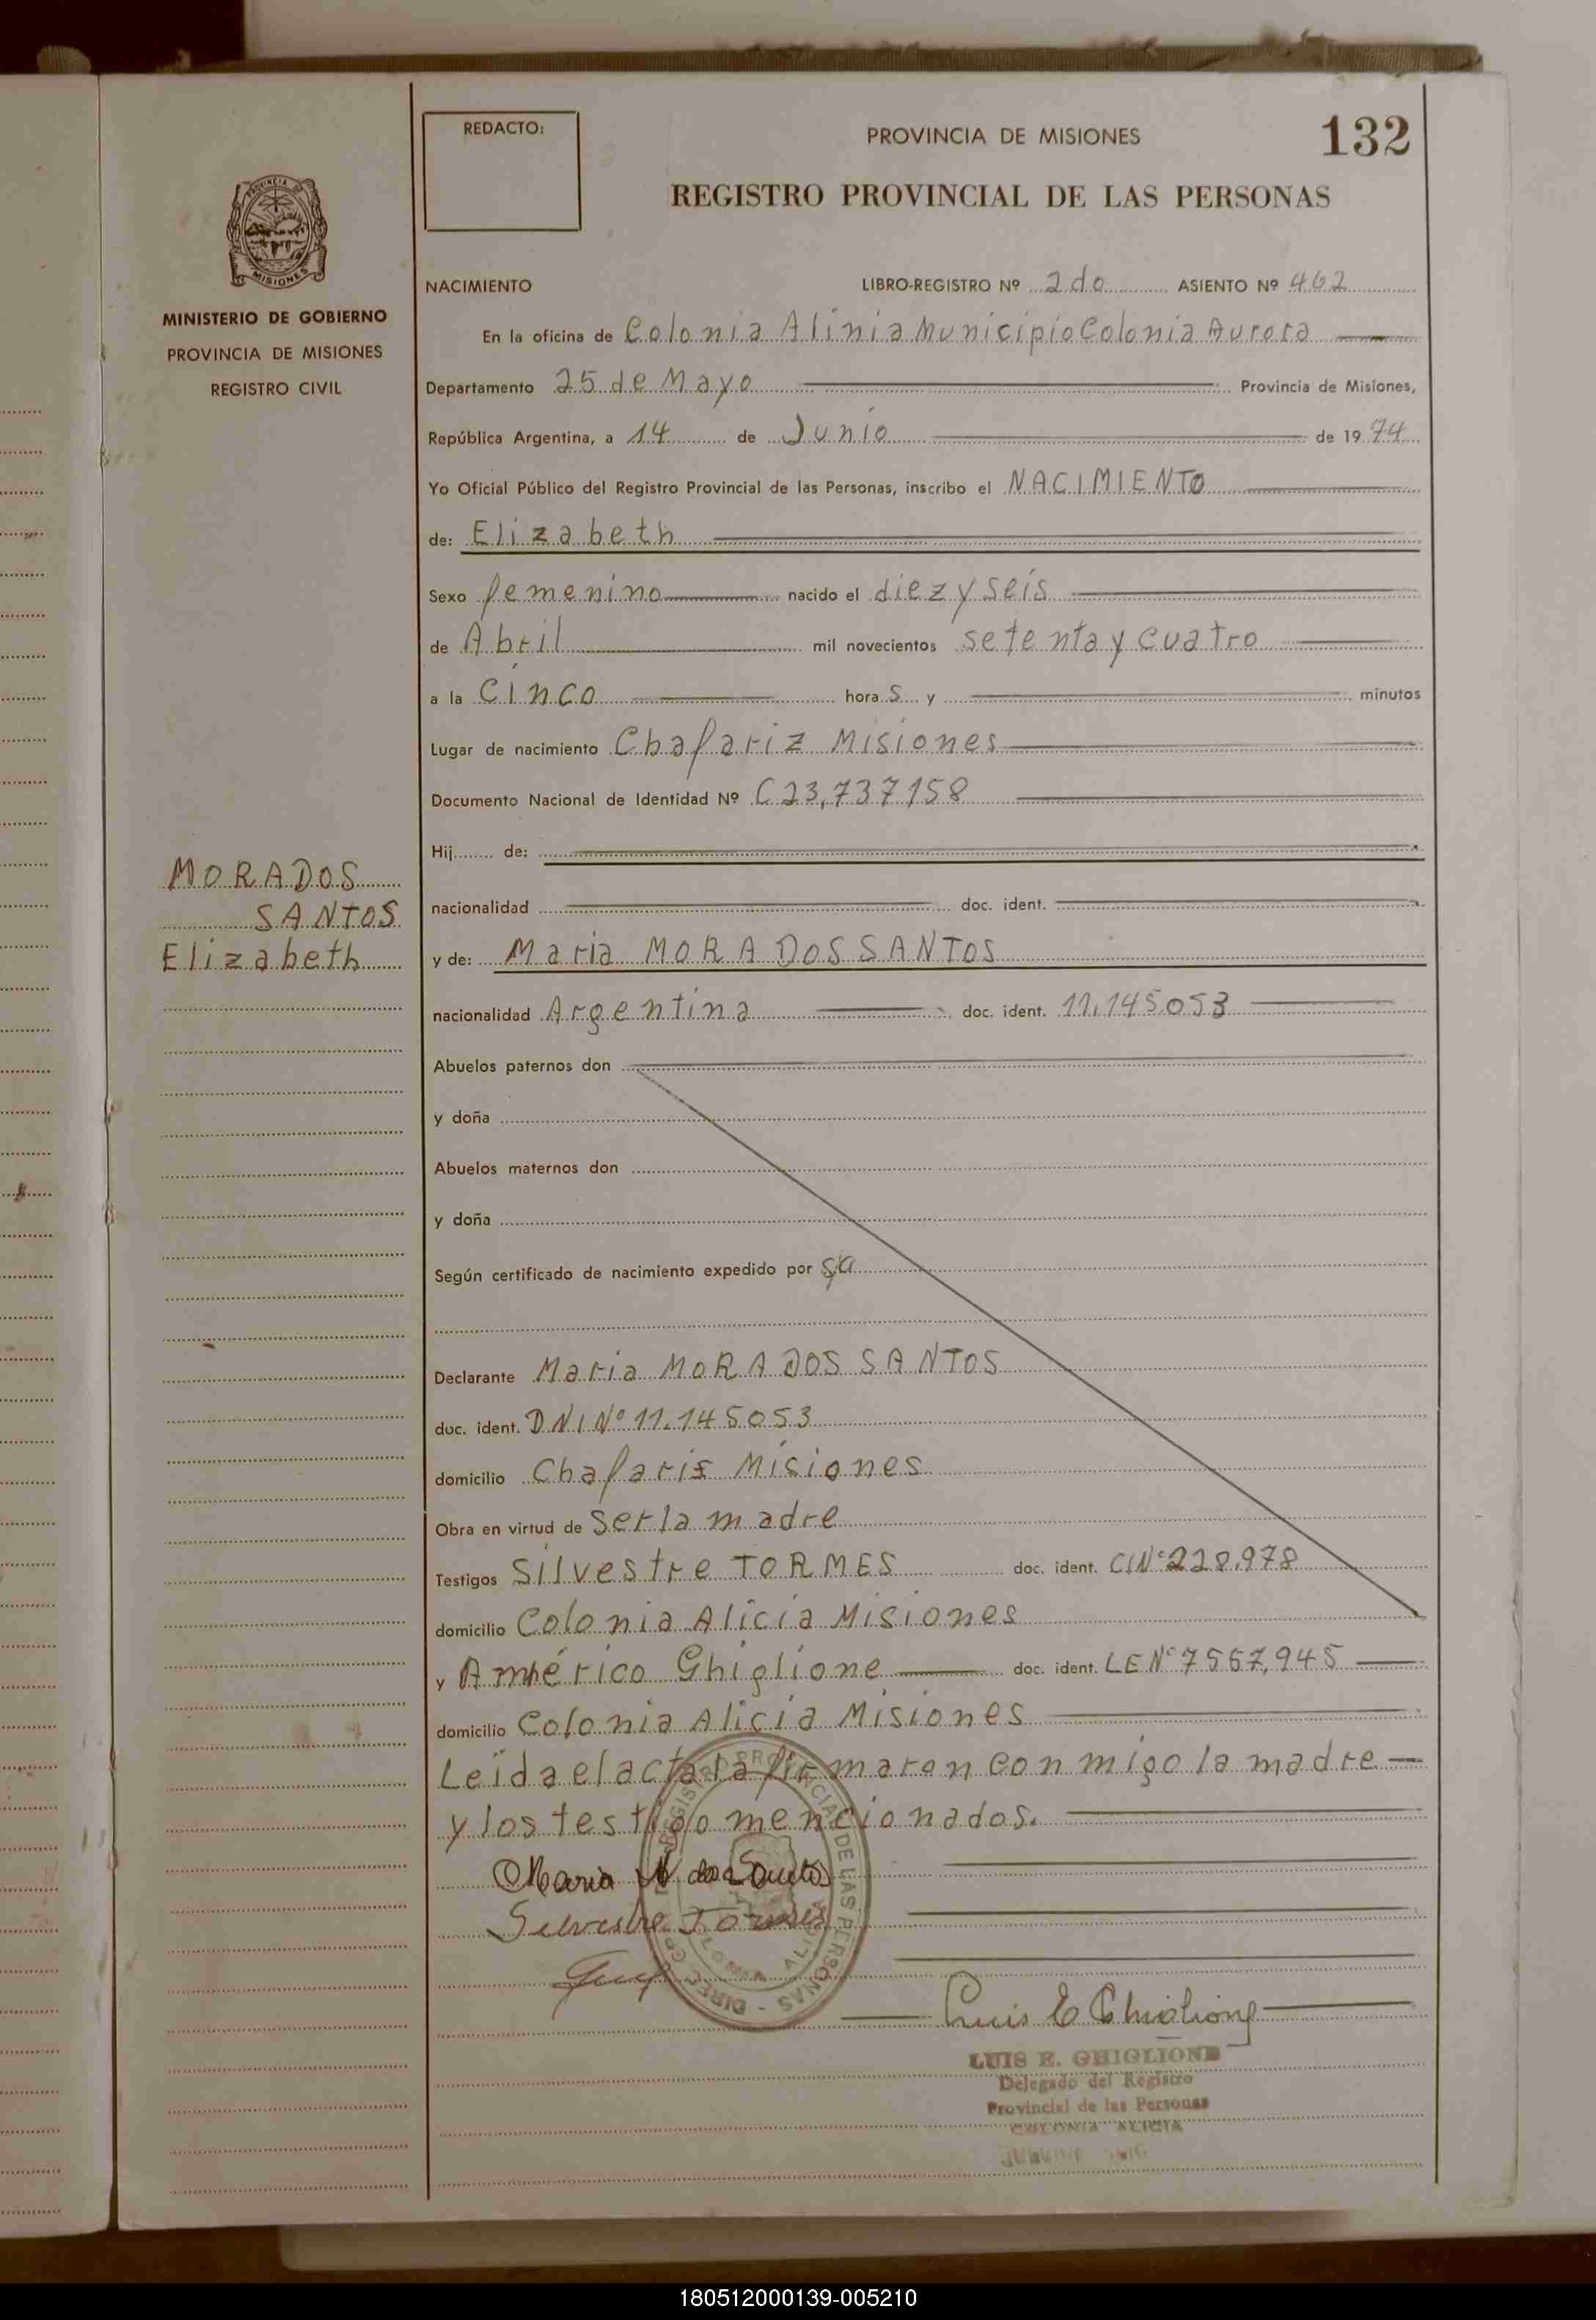 REDACTO:
PROVINCIA DE MISIONES
132
REGISTRO PROVINCIAL DE LAS PERSONAS
PROVINCIA DE
MISIONES
MINISTERIO DE GOBIERNO
PROVINCIA DE MISIONES
REGISTRO CIVIL
NACIMIENTO LIBRO-REGISTRO Nº 2do ASIENTO Nº 462
En la oficina de Colonia Alinia Municipio Colonia Aurora
Departamento 25 de Mayo Provincia de Misiones,
República Argentina, a 14 de Junio de 19 74
Yo Oficial Público del Registro Provincial de las Personas, inscribo el NACIMIENTO
de: Elizabeth
Sexo femenino nacido el diez y seis
de Abril mil novecientos setenta y cuatro
a la cinco hora s y minutos
Lugar de nacimiento Chafariz Misiones
Documento Nacional de Identidad Nº C 23,737158
Hij de:
MORADOS
SANTOS
Elizabeth
nacionalidad doc. ident.
y de: Maria MORA DOS SANTOS
nacionalidad Argentina doc. ident. 11.145.053
Abuelos paternos don
y doña
Abuelos maternos don
y doña
Según certificado de nacimiento expedido por
Declarante Maria MORA DOS SANTOS
doc. ident. DNI Nº 11.145053
domicilio Chafaris Misiones
Obra en virtud de ser la madre
Testigos Silvestre TORMES doc. ident. CI Nº 228.978
domicilio Colonia Alicia Misiones
y Américo Ghiglione doc. ident. LE Nº 7557,945
domicilio Colonia Alicia Misiones
Leida el acta la firmaron con migo la madre
y los testigo mencionados.
Maria dos Santos
Silvestre Tormes
Luis E Ghiglione
LUIS E. GHIGLIONE
Delegado del Registro
Provincial de las Personas
COLONIA ALICIA
180512000139-005210